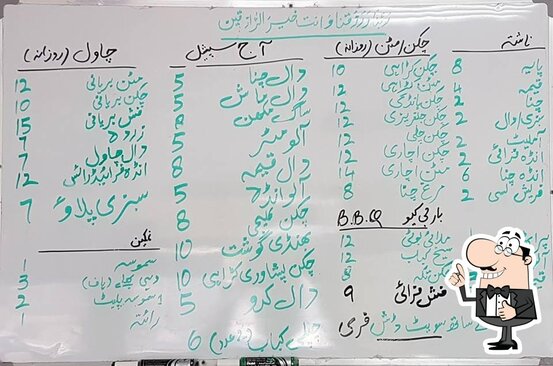 وارزقنا وانت خير الرازقين
ناشتہ
پایہ 8
قیمہ 4
چنا 2
2
آملیٹ 2
انڈہ فرائی 2
انڈہ چنا 6
فریش لسی 2
چکن/مٹن (روزانہ)
چکن کڑاہی 10
مٹن کڑاہی 12
چکن ہانڈی 12
چکن جلفریزی 12
چکن چلی 12
چکن اچاری 12
مٹن اچاری 14
مرغ چنا 8
باربی کیو B.B.Q
ملائی بوٹی 12
سیخ کباب 12
چکن تکہ 8
فش فرائی 9
کے ساتھ سویٹ ڈش فری
آج سپیشل
دال چنا 5
دال ماش 5
ساگ مکھن 8
آلو مٹر 5
دال قیمہ 8
آلو انڈہ 5
چکن قیمہ 8
بھنڈی گوشت 10
چکن پشاوری کڑاہی 10
دال کدو 5
چپلی کباب (عدد) 6
چاول (روزانہ)
مٹن بریانی 12
چکن بریانی 10
فش بریانی 15
زردہ 7
دال چاول 7
انڈہ فرائیڈ رائس 12
سبزی پلاؤ 7
نمکین
سموسہ 1
دہی بھلے (ہاف) 3
سموسہ پلیٹ 2
رائتہ 1